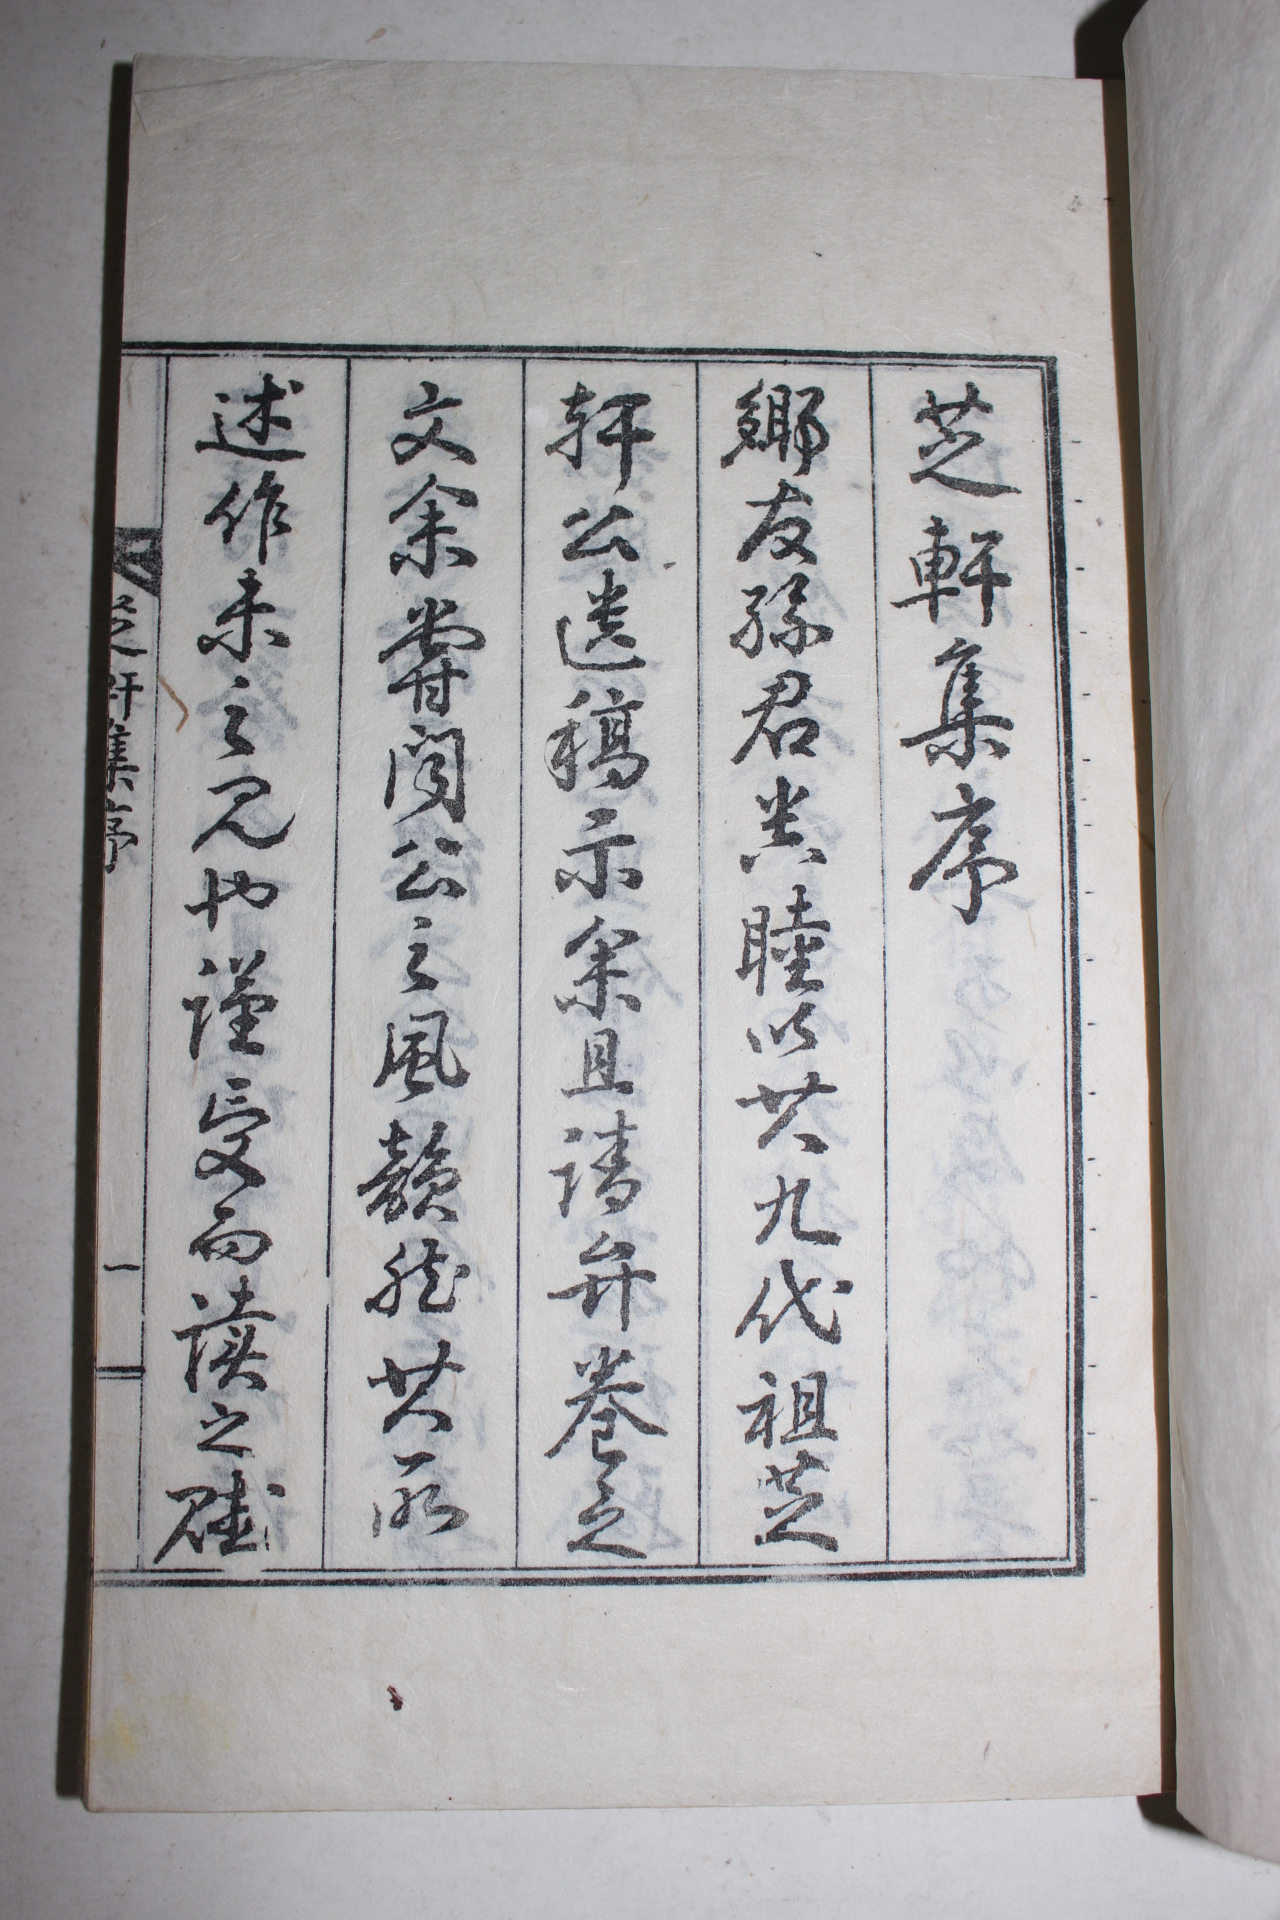 芝軒集序
鄉友孫君晉睦以其九代祖芝
軒公遺稿示余且請弁卷之
文余嘗聞公之風韻然其所
述作未之見也謹受而讀之雖
芝軒集序
一